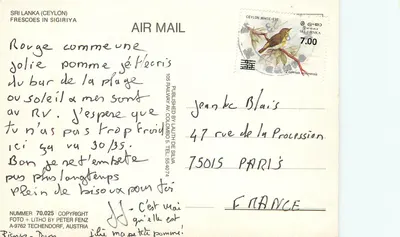 SRI LANKA (CEYLON)
FRESCOES IN SIGIRIYA
AIR MAIL
Rouge comme une
jolie pomme je t'ecris
du bar de la plage
ou soleil & mer sont
au RV. J'espere que
tu n'as pas trop froid
ici ça va 30/35.
Bon je ne t'embete
pas plus longtemps
plein de bisoux pour toi
C'est vrai
qu'elle est
jolie ma petite pomme
NUMBER 70.025 COPYRIGHT
FOTO + LITHO BY PETER FENZ
A-9762 TECHENDORF, AUSTRIA
PUBLISHED BY LALITH DE SILVA
RAILWAY AV. COLOMBO 5. TEL.
7.00
Jean Blais
47 rue de la Procession
75015 PARIS
FRANCE